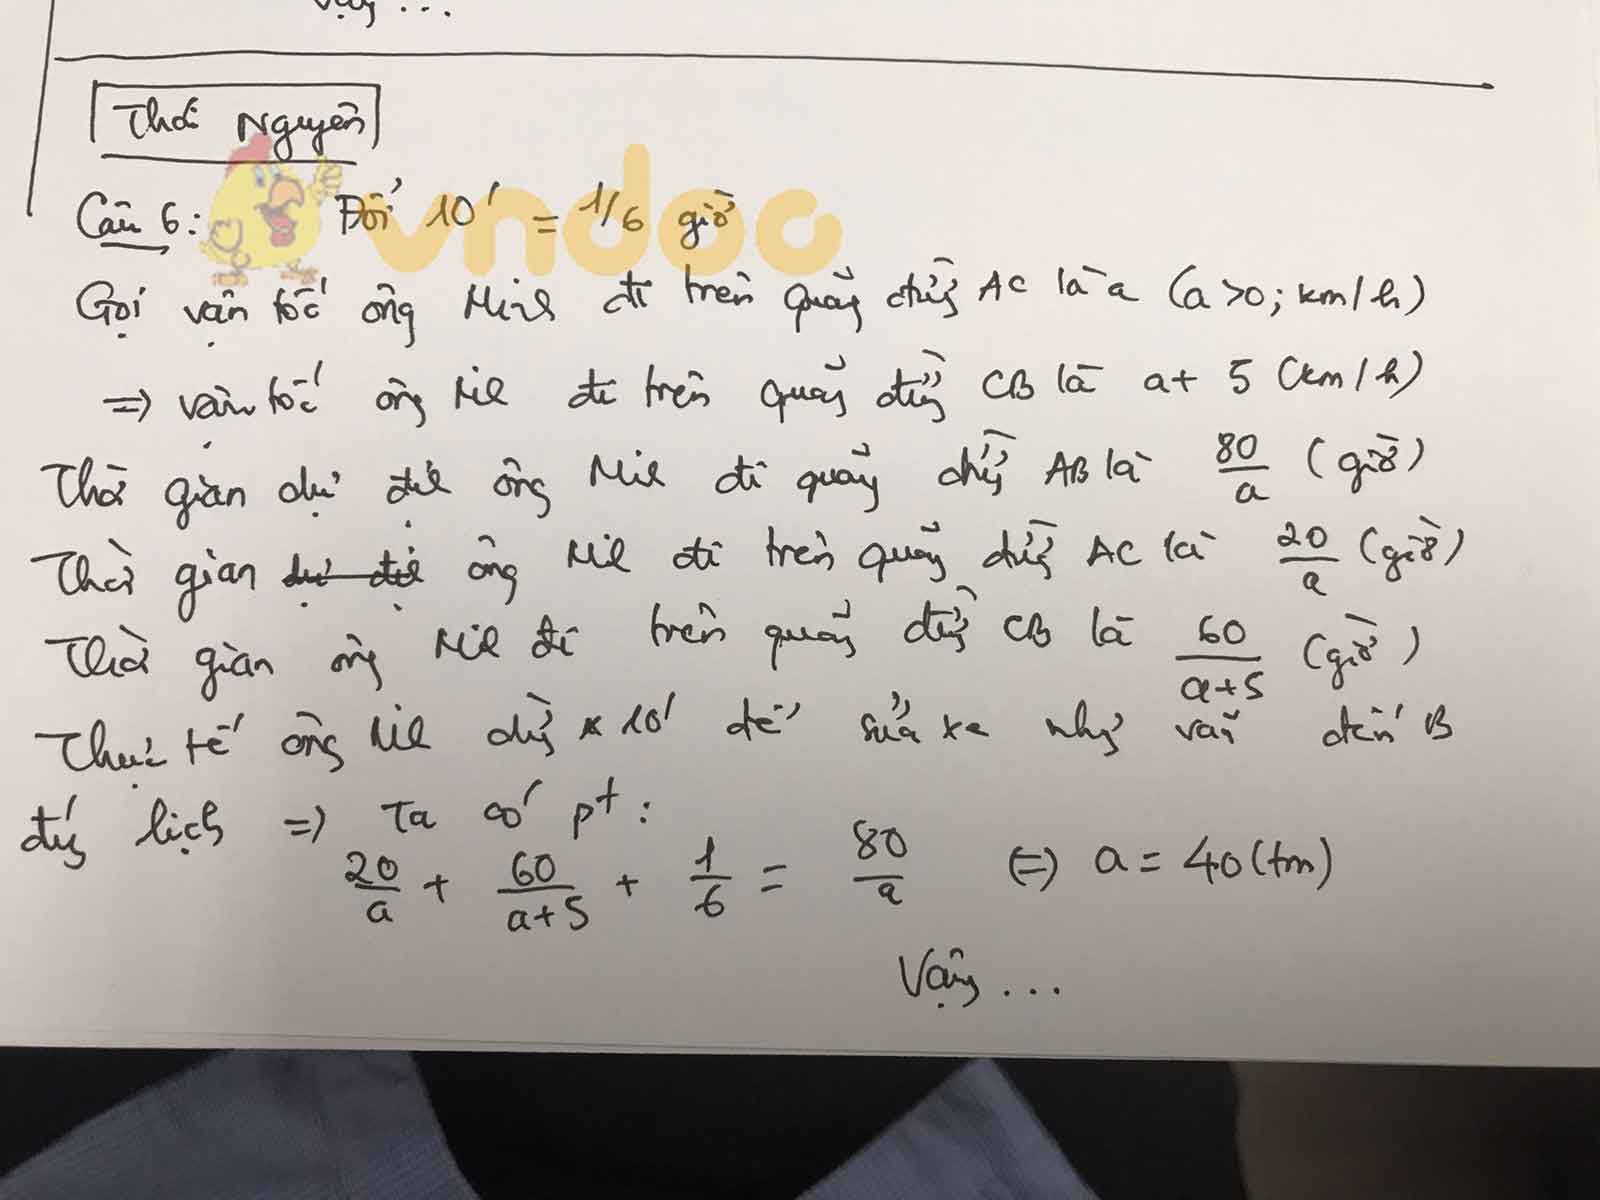 Vậy ...
Thái Nguyên
Câu 6: Đổi 10' = 1/6 giờ
vndoc
Gọi vận tốc ông Minh đi trên quãng đường AC là a (a>0; km/h)
=> vận tốc ông Minh đi trên quãng đường CB là a+ 5 (km/h)
Thời gian dự định ông Minh đi quãng đường AB là 80/a (giờ)
Thời gian dự định ông Minh đi trên quãng đường AC là 20/a (giờ)
Thời gian ông Minh đi trên quãng đường CB là 60/(a+5) (giờ)
Thực tế ông Minh dừng 10' để sửa xe nhưng vẫn đến B
đúng lịch => Ta có pt:
20/a + 60/(a+5) + 1/6 = 80/a <=> a = 40 (tm)
Vậy ...